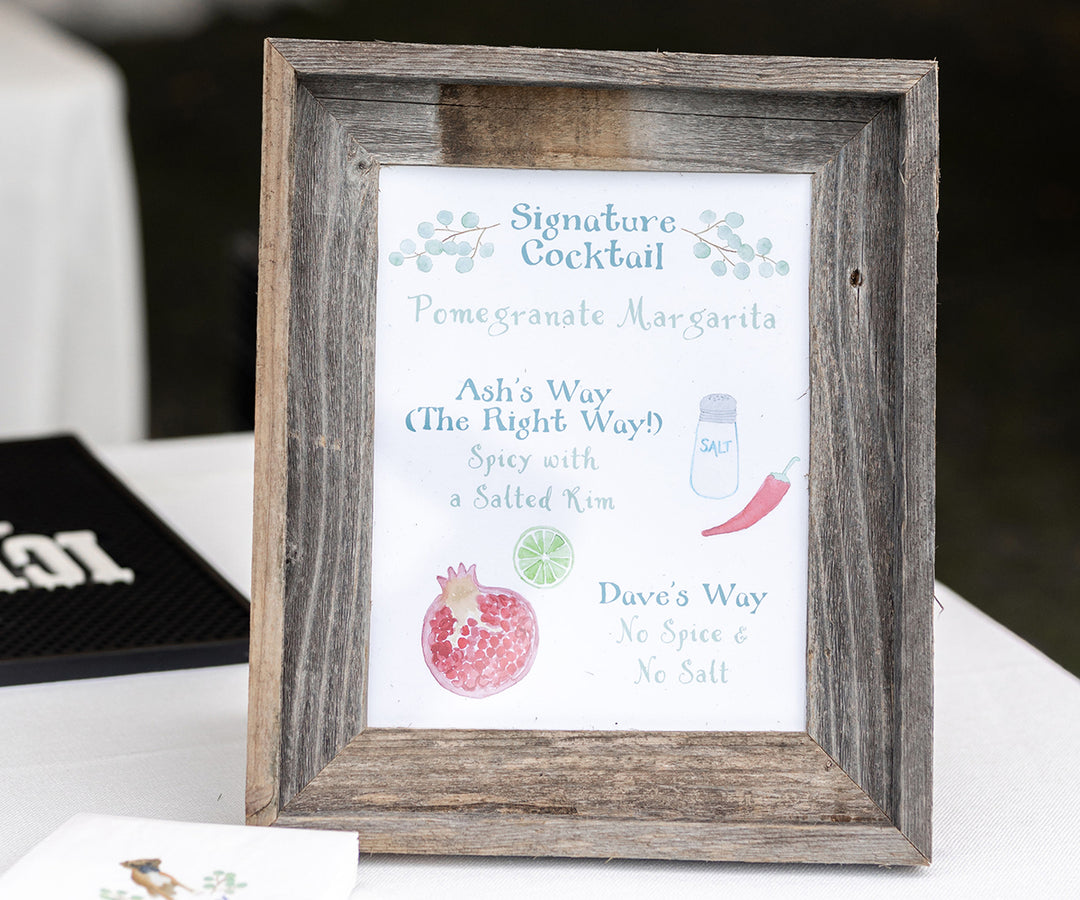 Signature
Cocktail
Pomegranate Margarita
Ash's Way
(The Right Way!)
Spicy with
a Salted Rim
SALT
Dave's Way
No Spice &
No Salt